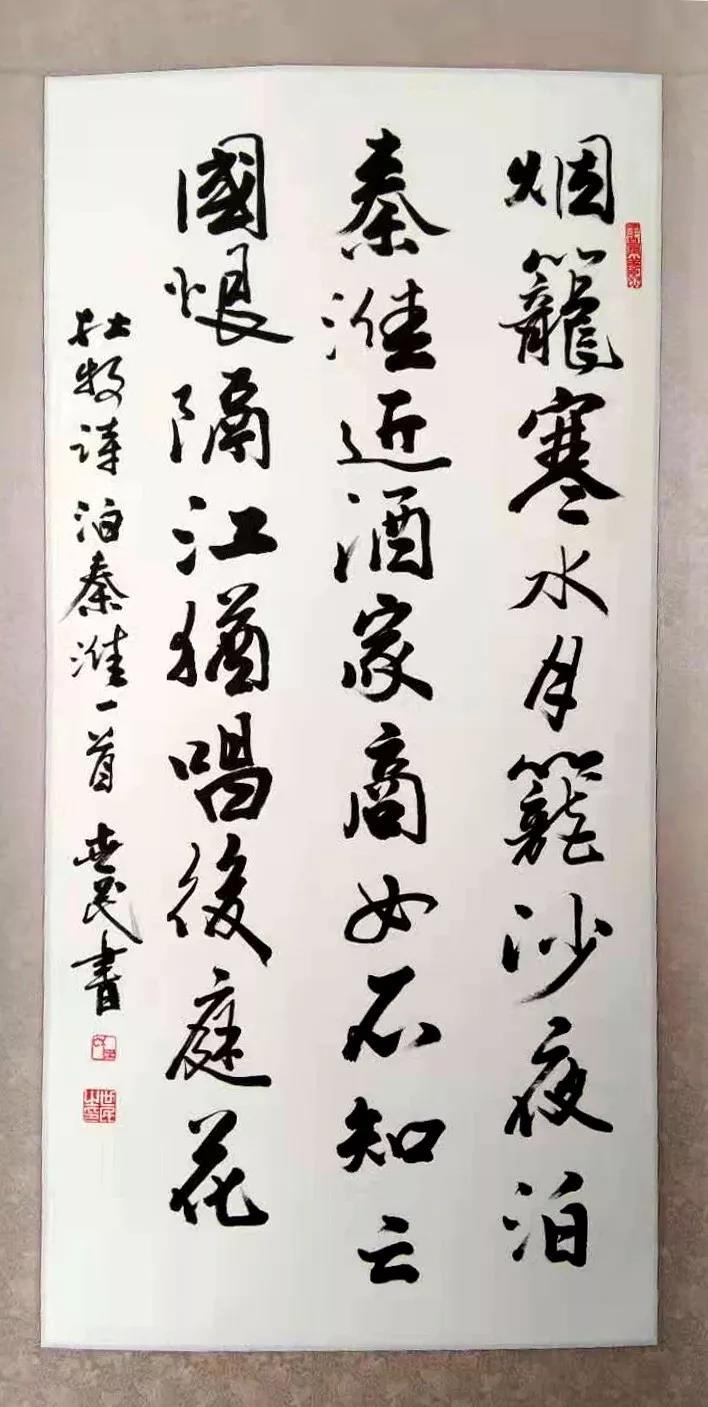 烟籠寒水月籠沙夜泊
秦淮近酒家商女不知亡
國恨隔江猶唱後庭花
杜牧诗泊秦淮一首 世民書
世民之印